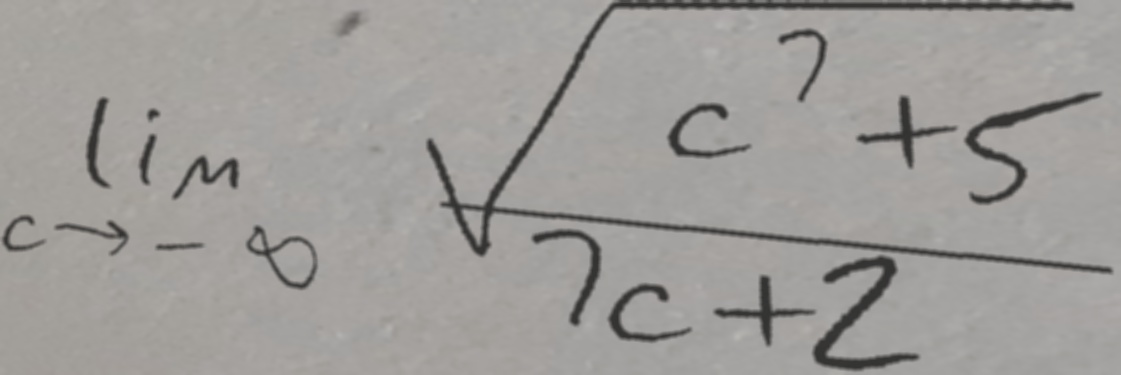 \lim_{c \to -\infty} \frac{\sqrt{c^7+5}}{7c+2}